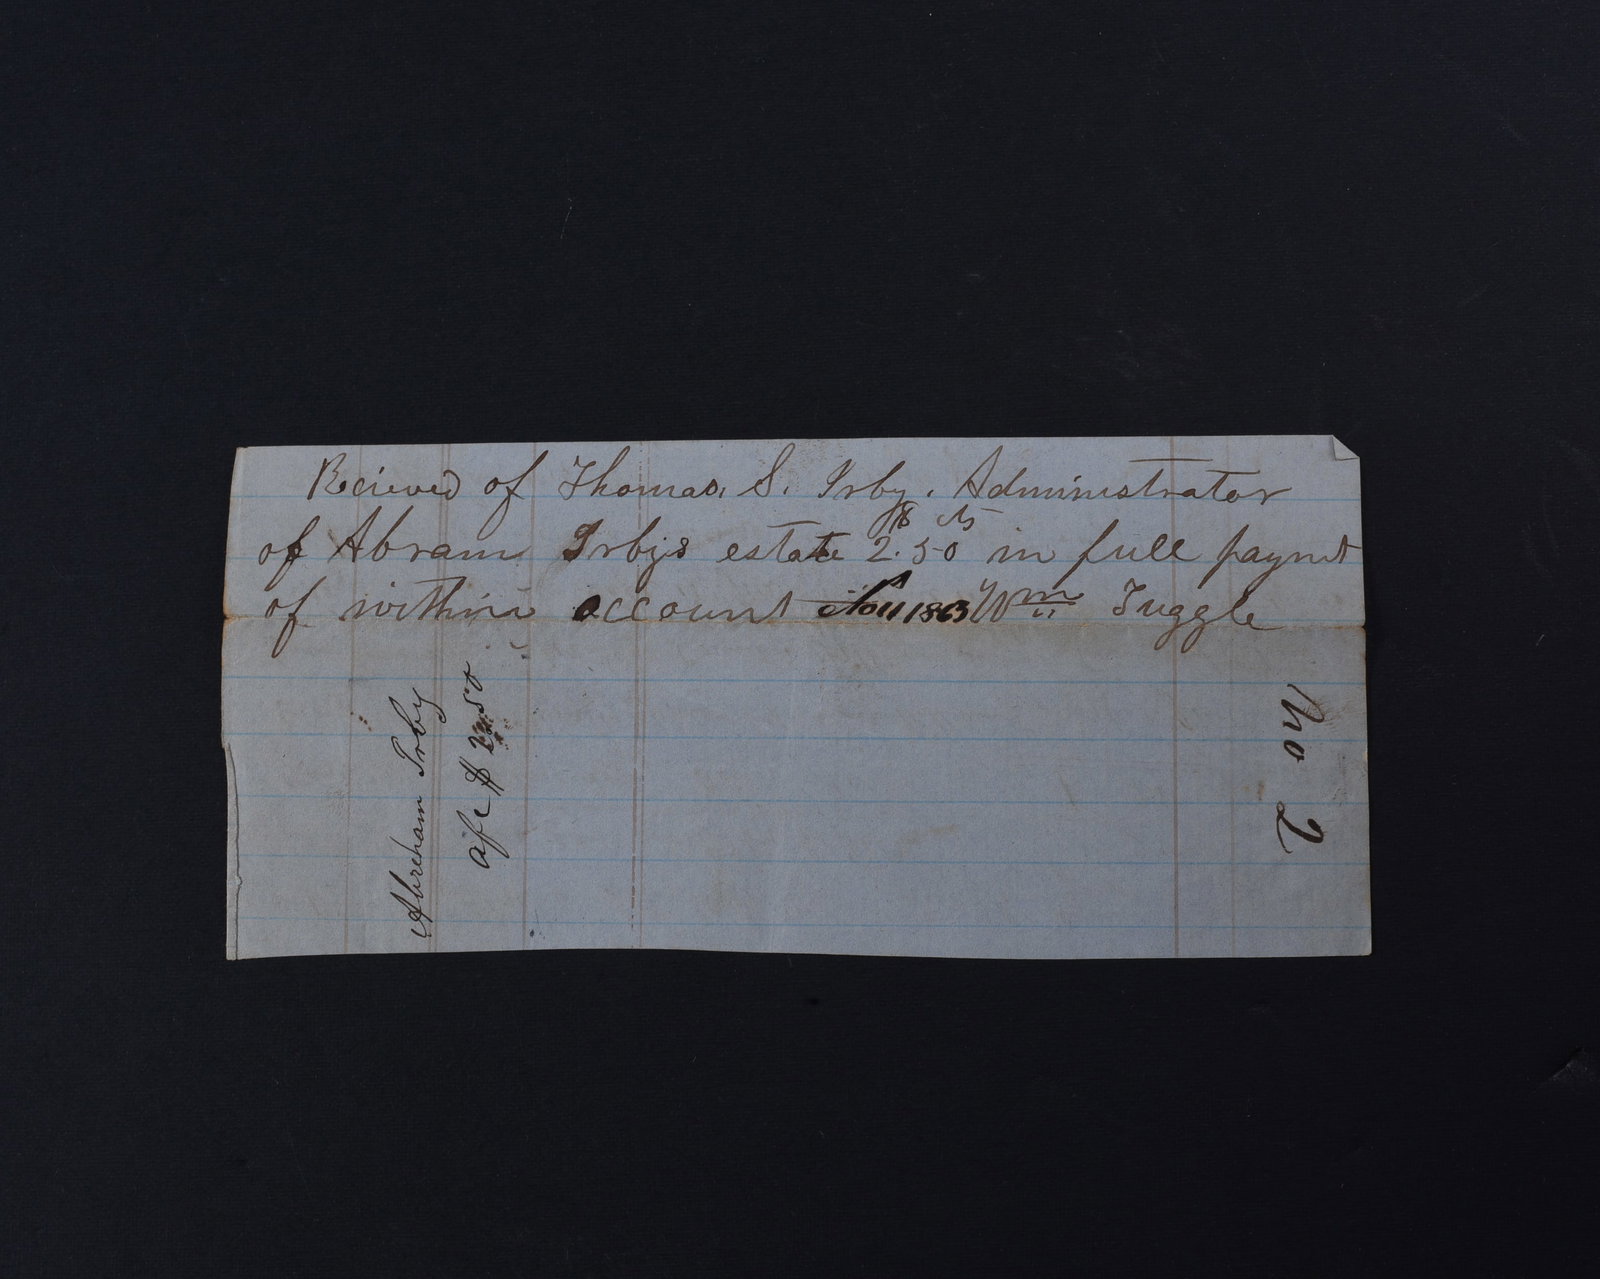 Recieved of Thomas. S. Irby. Administrator
of Abram Irbys estate $ 2.50 cts in full paymt
of within account Nov 1863 Wm Tuggle
Abreham Irby
a/c $ 2.50
No 2